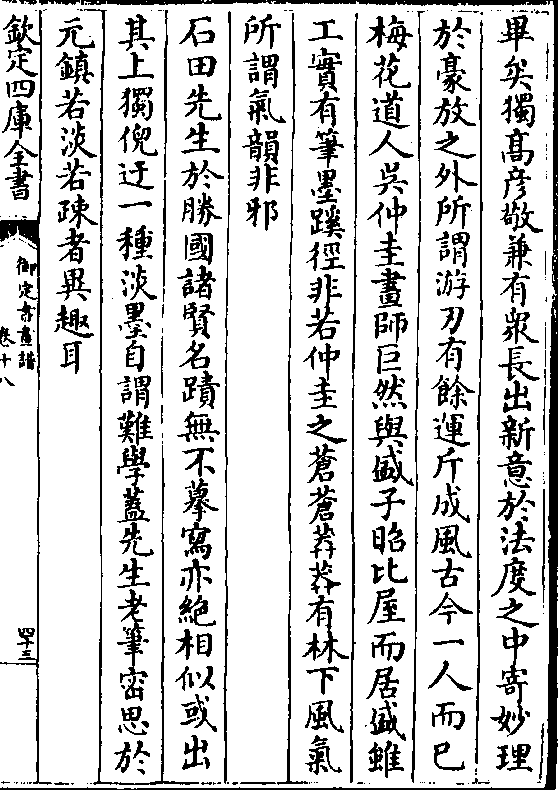 畢矣獨髙彦敬兼有衆長出新意於法度之中寄妙理
於豪放之外所謂游刃有餘運斤成風古今一人而已
梅花道人吳仲圭畫師巨然與盛子昭比屋而居盛雖
工實有筆墨蹊徑非若仲圭之蒼蒼莽莽有林下風氣
所謂氣韻非邪
石田先生於勝國諸賢名蹟無不摹寫亦絶相似或出
其上獨倪迂一種淡墨自謂難學葢先生老筆宻思於
元鎮若淡若疎者異趣耳
欽定四庫全書
御定書畫譜
卷十八
四十三